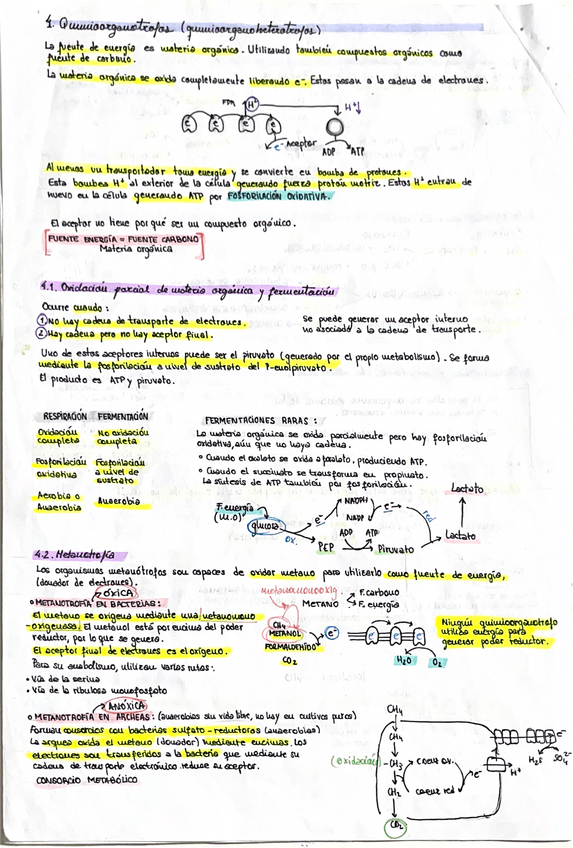 4. Quimioorganotrofos (quimioorganoheterótrofos)
La fuente de energía es materia orgánica. Utilizando también compuestos orgánicos como
fuente de carbono.
La materia orgánica se oxida completamente liberando e-. Estos pasan a la cadena de electrones.
FDN H+ H+↓
e e e e
e- Aceptor ADP ATP
Al menos un transportador toma energía y se convierte en bomba de protones.
Esta bombea H+ al exterior de la célula generando fuerza protón motriz. Estos H+ entran de
nuevo en la célula generando ATP por FOSFORILACIÓN OXIDATIVA.
El aceptor no tiene por qué ser un compuesto orgánico.
FUENTE ENERGÍA = FUENTE CARBONO
Materia orgánica
4.1. Oxidación parcial de materia orgánica y fermentación
Ocurre cuando:
① No hay cadena de transporte de electrones.
② Hay cadena pero no hay aceptor final.
Se puede generar un aceptor interno
no asociado a la cadena de transporte.
Uno de estos aceptores internos puede ser el piruvato (generado por el propio metabolismo). Se forma
mediante la fosforilación a nivel de sustrato del P-enolpiruvato.
El producto es ATP y piruvato.
RESPIRACIÓN FERMENTACIÓN
Oxidación completa No oxidación completa
Fosforilación oxidativa Fosforilación a nivel de sustrato
Aerobia o Anaerobia Anaerobia
FERMENTACIONES RARAS:
La materia orgánica se oxida parcialmente pero hay fosforilación
oxidativa, aún que no haya cadena.
° Cuando el oxalato se oxida a formiato, produciendo ATP.
° Cuando el succinato se transforma en propionato.
La síntesis de ATP también por fosforilación.
F. energía
(M.O)
glucosa
ox.
e-
NADPH
NADP
e-
red
Lactato
Lactato
ADP ATP
PEP Piruvato
4.2. Metanotrofía
Los organismos metanótrofos son capaces de oxidar metano para utilizarlo como fuente de energía,
(donador de electrones).
ÓXICA
° METANOTROFÍA EN BACTERIAS:
El metano se oxigena mediante una metanomono
-oxigenasa. El metanol está por encima del poder
reductor, por lo que se genera.
El aceptor final de electrones es el oxígeno.
Para su anabolismo, utilizan varias rutas:
• Vía de la serina
• Vía de la ribulosa monofosfato
metanomonooxig.
METANO F. carbono
F. energía
CH4
METANOL
FORMALDEHÍDO
CO2
e-
e e e
H2O O2
Ningún quimioorganotrofo
utiliza energía para
generar poder reductor.
ANÓXICA
° METANOTROFÍA EN ARCHEAS: (anaerobias sin vida libre, no hay en cultivos puros)
Forman consorcios con bacterias sulfato-reductoras (anaerobias)
La arquea oxida el metano (donador) mediante enzimas, los
electrones son transferidos a la bacteria que mediante su
cadena de transporte electrónico reduce su aceptor.
CONSORCIO METABÓLICO
CH4
CH4
(oxidación) -CH3
CH2
CO2
coenz ox.
coenz red
e-
H+
H2S SO4 2-